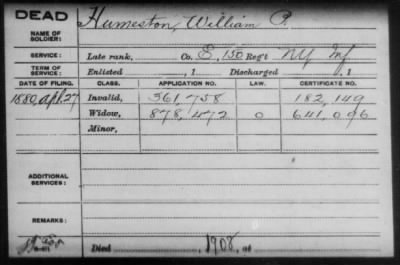 DEAD
NAME OF SOLDIER: Humeston, William P.
SERVICE: Late rank, Co. E, 150 Reg't NY Inf
TERM OF SERVICE: Enlisted , 1 Discharged , 1
DATE OF FILING. CLASS. APPLICATION NO. LAW. CERTIFICATE NO.
1880, Apl. 27 Invalid, 361,758 182,149
Widow, 878,472 0 641,096
Minor,
ADDITIONAL SERVICES:
REMARKS:
Died 1908, at